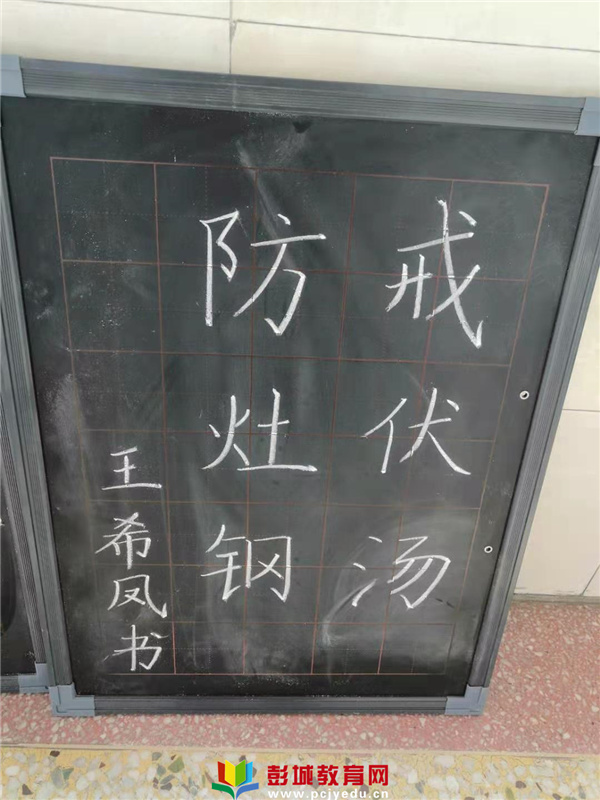 戒伏汤
防灶钢
王希凤书
彭城教育网
www.pcjyedu.cn